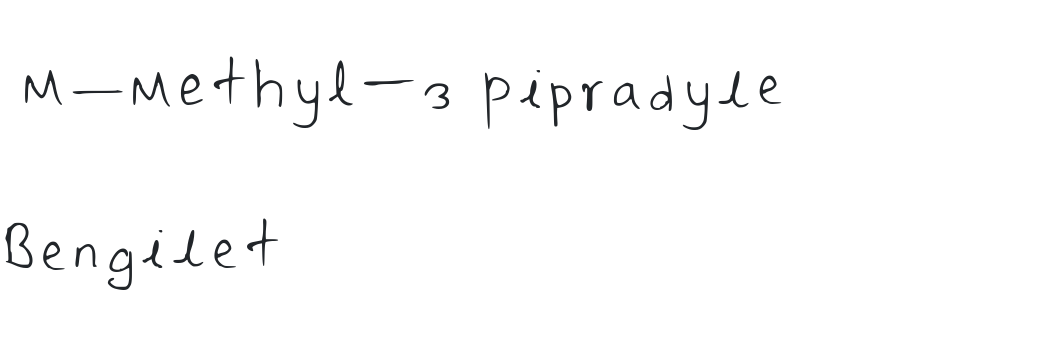 M-Methyl-3 pipradyle
Bengilet